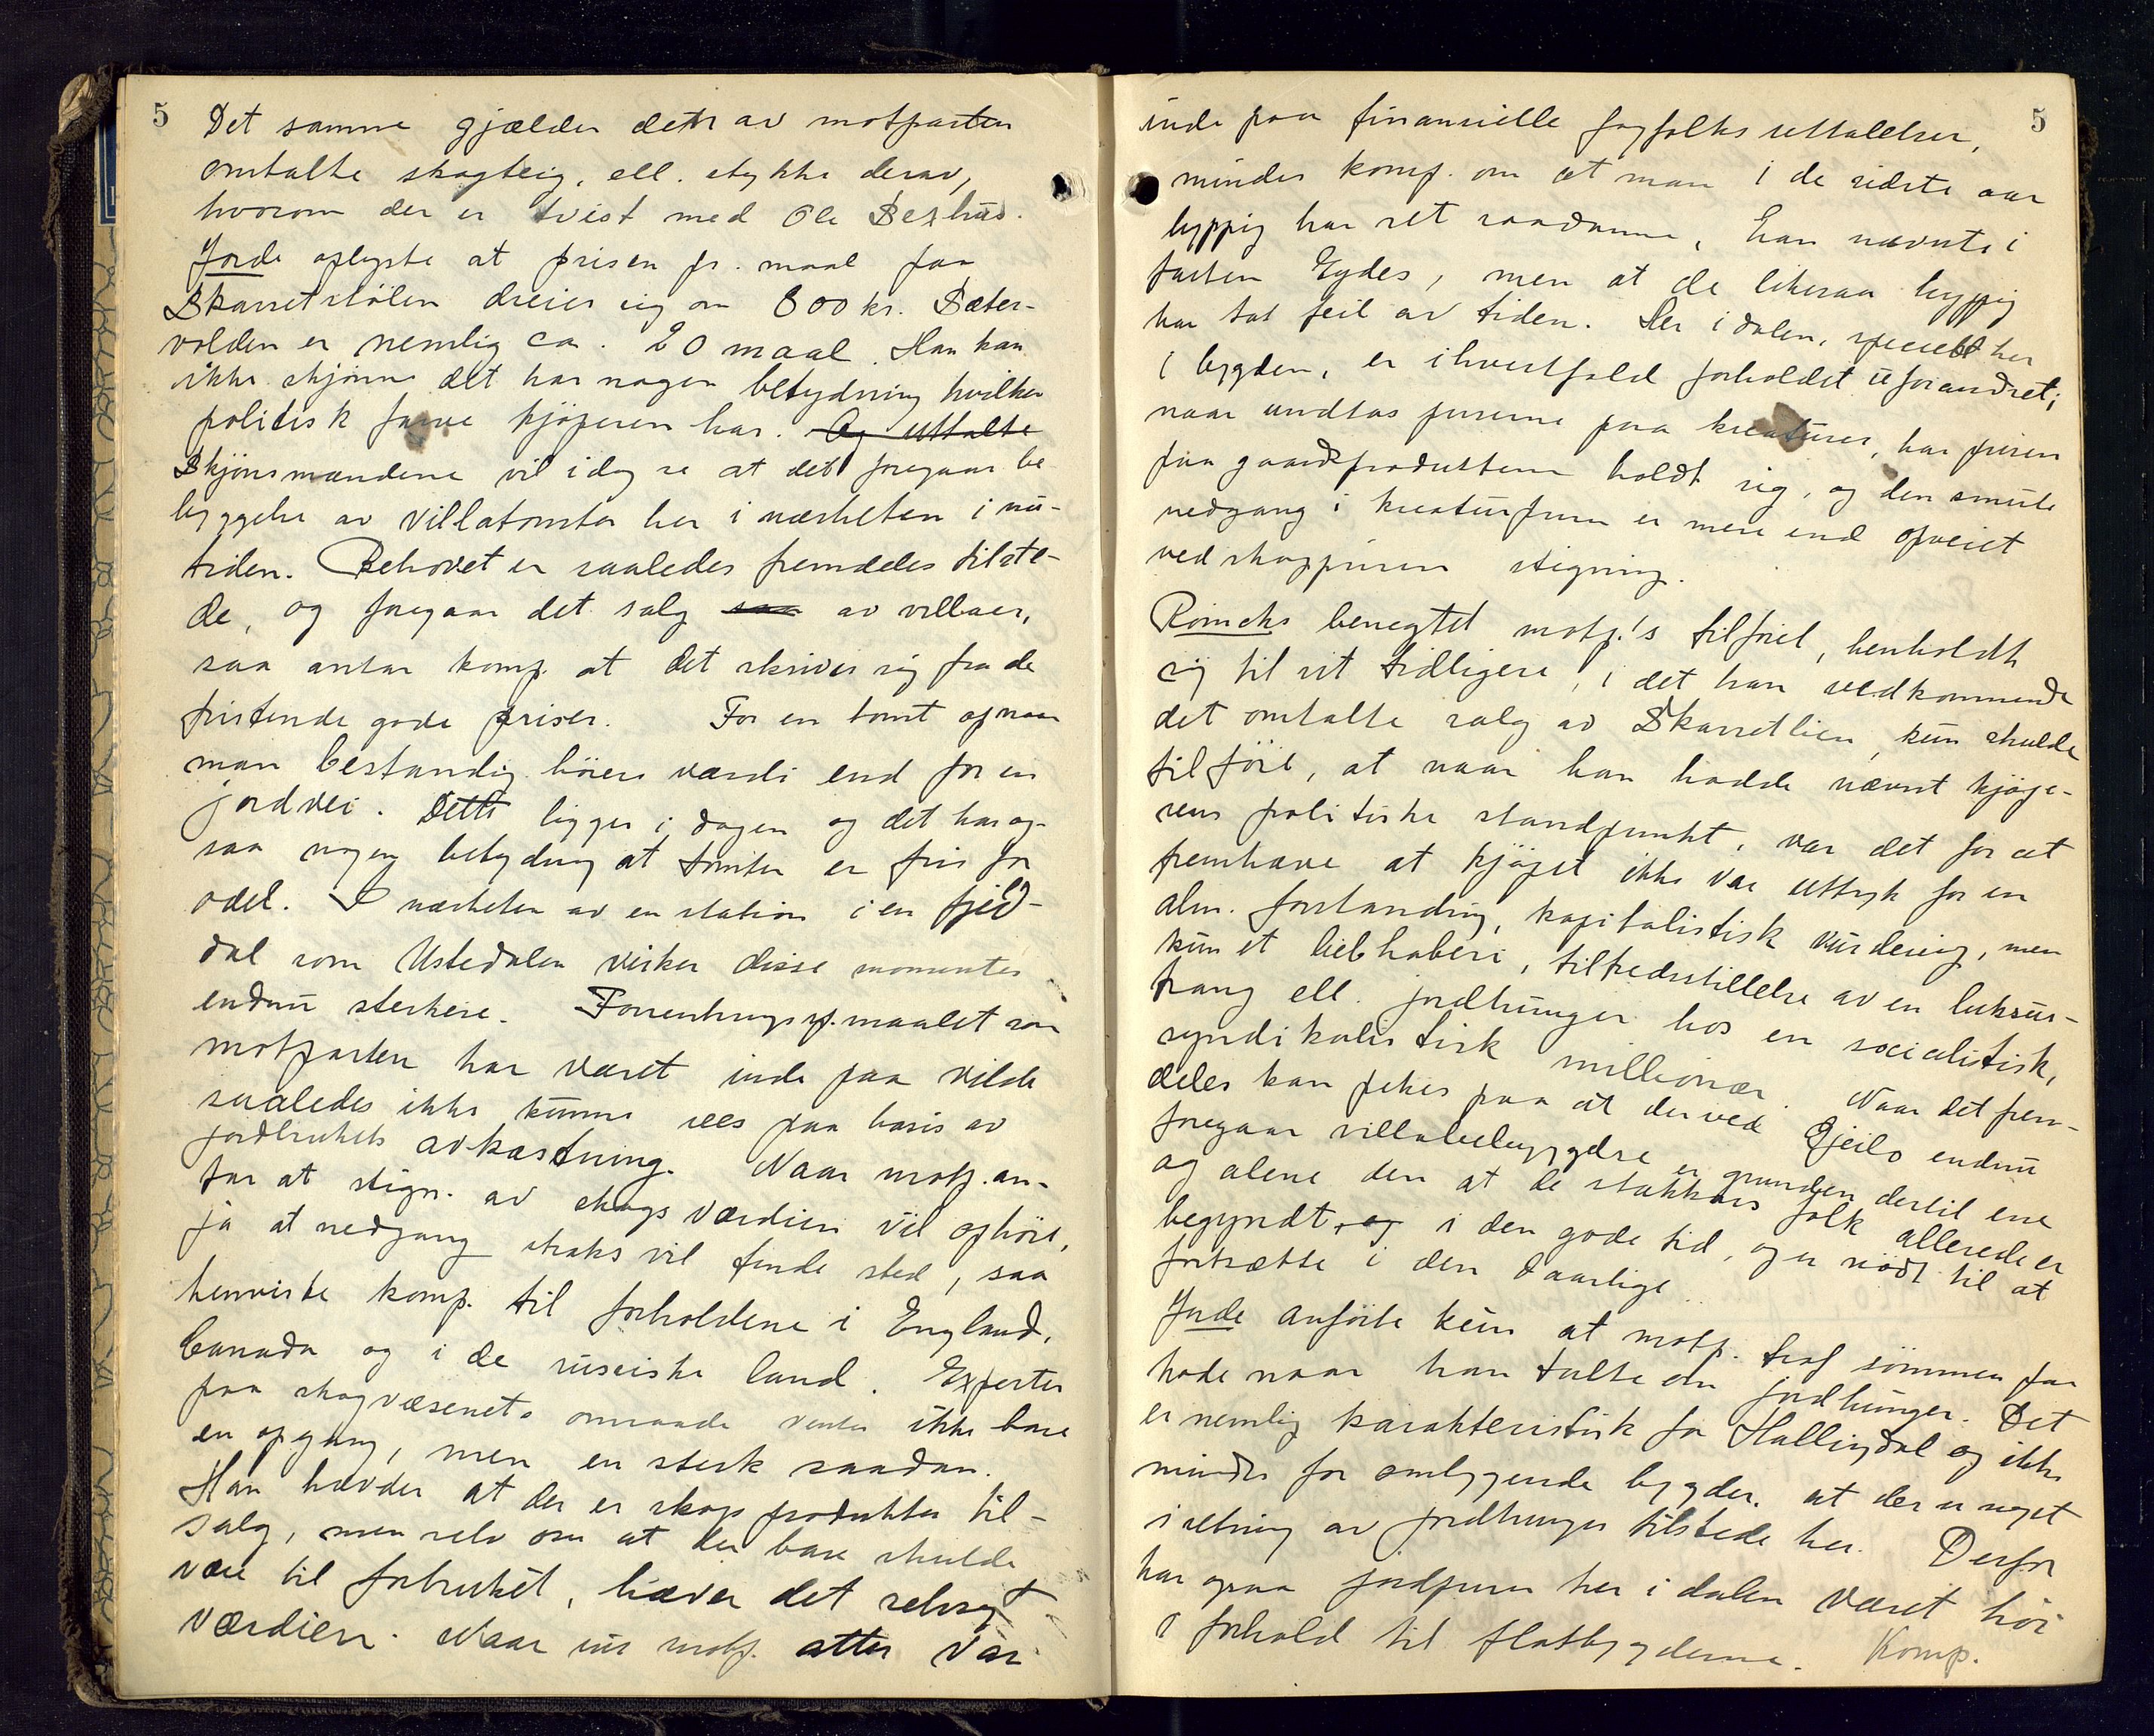 5
Det samme gjælder den av motparten
omtalte skogteig, ell. stykke derav,
hvorom der er tvist med Ole Bexhus.
Jorde oplyste at prisen pr. maal paa
Skarretstølen dreier sig om 800 kr. Sæter-
volden er nemlig ca. 20 maal. Han kan
ikke skjønne det har nogen betydning hvilken
politisk farve kjøperen har. Og uttalte
Skjønsmændene vil idag se at det foregaar be
byggelse av villatomter her i nærheten i nu-
tiden. Behovet er saaledes fremdeles tilste-
de, og foregaar det salg saa av villaer,
saa antar komp. at det skriver sig fra de
fristende gode priser. For en tomt opnaar
man bestandig høiere værdi end for en
jordvei. Dette ligger i dagen og det har og-
saa nogen betydning at tomten er fri for
odel. I nærheten av en station i en fjeld-
dal som Ustedalen virker disse momenter
endnu sterkere. Forrentningssp.maalet som
motparten har været inde paa vilde
saaledes ikke kunne sees paa basis av
jordbrukets avkastning. Naar motp. an-
tar at stign. av skogsværdien vil ophøre,
ja at nedgang straks vil finde sted, saa
henviste komp. til forholdene i England,
Canada og i de russiske land. Experter
paa skogvæsenets omraade venter ikke bare
en opgang, men en sterk saadan.
Han hævder at der er skogsprodukter til-
salg, men selv om at der bare skulde
være til forbruket, hæver det selvsagt
værdien. Naar nu motp. atter var
5
inde paa finansielle fagfolks uttalelser,
mindes komp. om at man i de sidste aar
hyppig har set saadanne, han nævnte i
farten Eydes, men at de likesaa hyppig
har tat feil av tiden. Her i dalen, specielt her
i bygden, er ihvertfald forholdet uforandret;
naar undtas priserne paa kreaturer, har prisen
paa gaardsprodukterne holdt sig, og den smule
nedgang i kreaturprisen er mere end opveiet
ved skogprisens stigning.
Roincke benegtet motp.'s tilførsel, henholdt
sig til sit tidligere, i det han vedkommende
det omtalte salg av Skarretlien, kun skulde
tilføie, at naar han hadde nævnt kjøpe-
rens politiske standpunkt, var det for at
fremhæve at kjøpet ikke var uttryk for en
alm. forstandig, kapitalistisk vurdering, men
kun et liebhaberi, tilfredsstillelse av en luksus-
trang ell. jordhunger hos en socialistisk,
syndikalistisk millionær. Naar det frem-
deles kan pekes paa at der ved Gjeilo endnu
foregaar villabebyggelse er grunden dertil ene
og alene den at de stakkars folk allerede er
begyndt, og i den gode tid, og er nødt til at
fortsætte i den daarlige.
Jorde anførte kun at motp. traf sømmen paa
hode naar han talte om jordhunger. Det
er nemlig karakteristisk for Hallingdal og ikke
mindst for omliggende bygder, at der er noget
i retning av jordhunger tilstede her. Derfor
har ogsaa jordprisen her i dalen været høi
i forhold til flatbygderne. Komp.